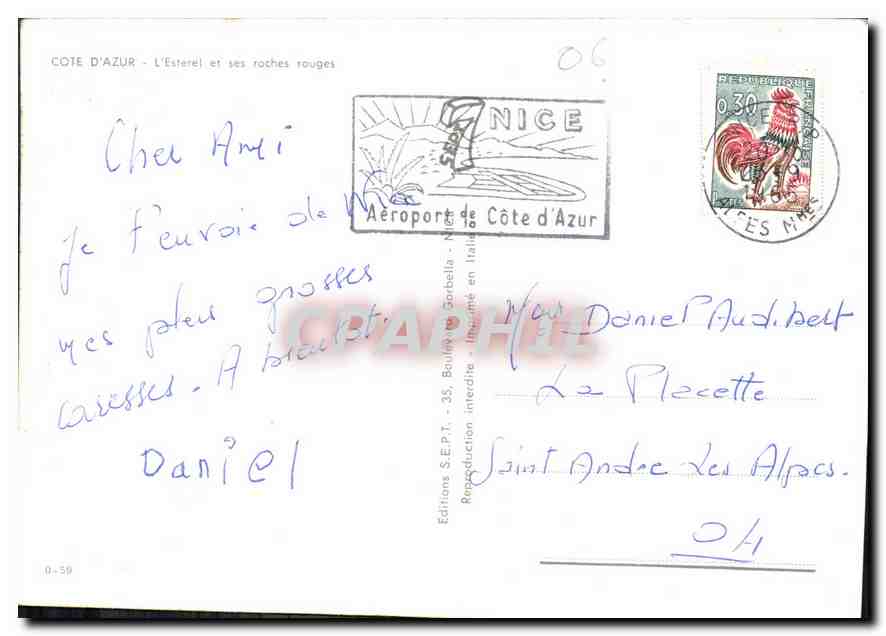 COTE D'AZUR - L'Esterel et ses roches rouges
06
7
SEPT
NICE
Aéroport de la Côte d'Azur
REPUBLIQUE FRANÇAISE
0,30
ALPES Mmes
Cher Ami
Je t'envoie de Nice
mes plus grosses
caresses. A bientot.
Daniel
Editions S.E.P.T. - 35, Boulevard Gorbella - NICE
Reproduction interdite - Imprimé en Italie
CPAPHIL
Daniel Audibert
La Placette
Saint Andre Les Alpes.
04
0-59